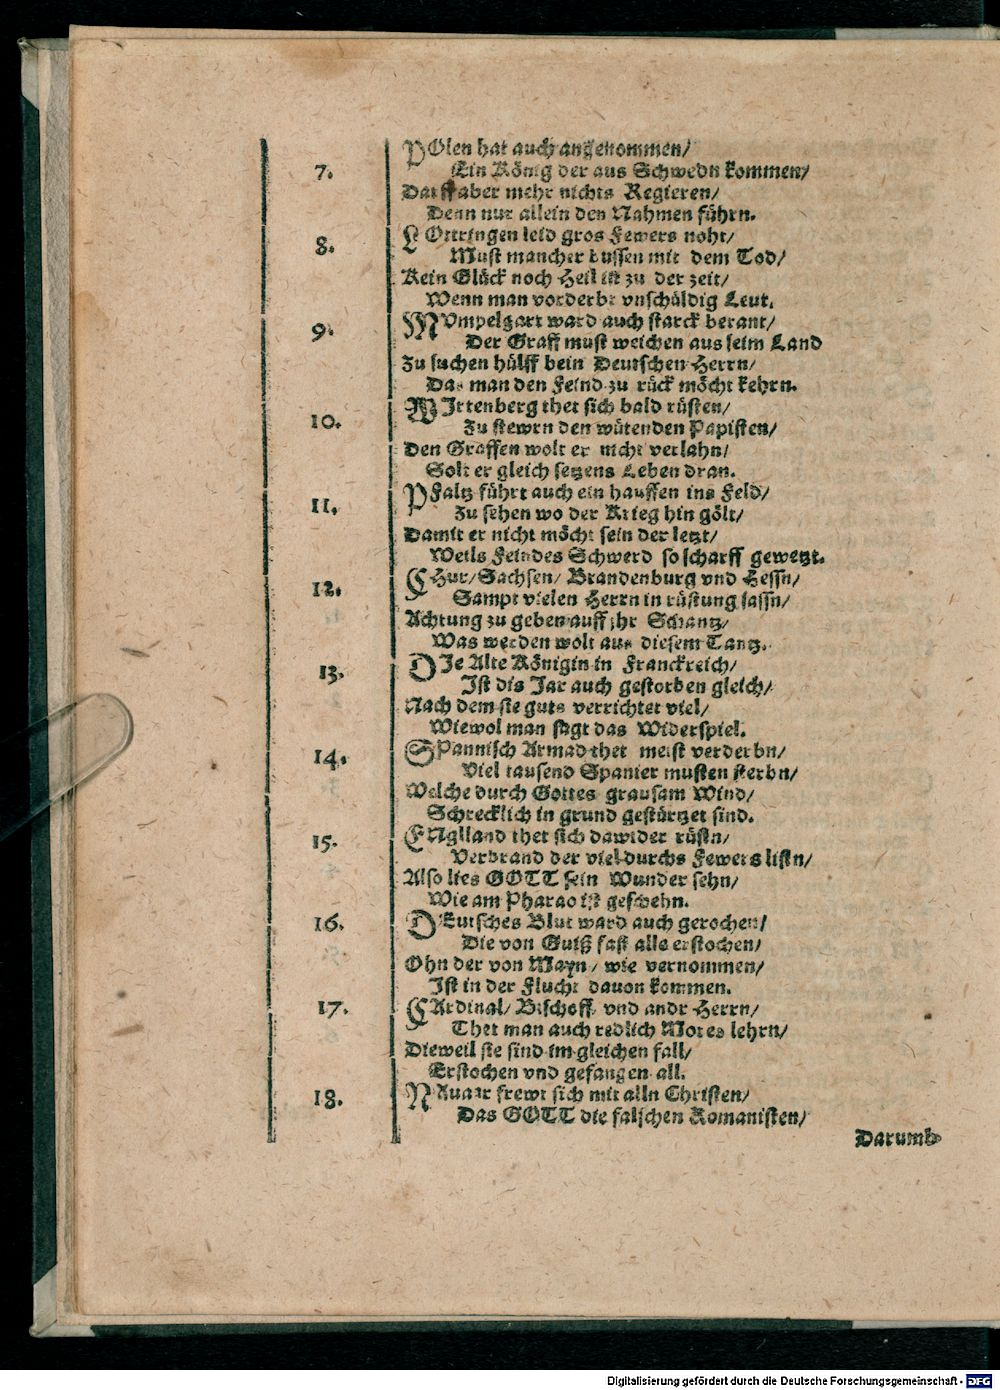 7.
POlen hat auch angenommen/
Ein König der aus Schwedn kommen/
Darff aber mehr nichts Regieren/
Denn nur allein den Nahmen führn.
8.
LOttringen leid gros Fewers noht/
Must mancher bussen mit dem Tod/
Kein Glück noch Heil ist zu der zeit/
Wenn man vorderbt vnschüldig Leut.
9.
MVmpelgart ward auch starck berant/
Der Graff must weichen aus seim Land
Zu suchen hülff bein Deutschen Herrn/
Das man den Feind zu rück möcht kehrn.
10.
WIrtenberg thet sich bald rüsten/
Zu stewrn den wütenden Papisten/
Den Graffen wolt er nicht verlahn/
Solt er gleich setzens Leben dran.
11.
PFaltz führt auch ein hauffen ins Feld/
Zu sehen wo der Krieg hin gölt/
Damit er nicht möcht sein der letzt/
Weils Feindes Schwerd so scharff gewetzt.
12.
CHur/Sachsen/ Brandenburg vnd Hessn/
Sampt vielen Herrn in rüstung sassn/
Achtung zu geben auff jhr Schantz/
Was werden wolt aus diesem Tantz.
13.
DJe Alte Königin in Franckreich/
Jst dis Jar auch gestorben gleich/
Nach dem sie guts verrichtet viel/
Wiewol man sagt das Widerspiel.
14.
SPannisch Armad thet meist verderbn/
Viel tausend Spanier musten sterbn/
Welche durch Gottes grausam Wind/
Schrecklich in grund gestürtzet sind.
15.
ENglland thet sich dawider rüstn/
Verbrand der viel durchs Fewers listn/
Also lies GOTT sein Wunder sehn/
Wie am Pharao ist geschehn.
16.
DEutsches Blut ward auch gerochen/
Die von Guiß fast alle erstochen/
Ohn der von Mayn/ wie vernommen/
Jst in der Flucht dauon kommen.
17.
CArdinal/ Bischoff/ vnd andr Herrn/
Thet man auch redlich Mores lehrn/
Dieweil sie sind im gleichen fall/
Erstochen vnd gefangen all.
18.
NAuarr frewt sich mit alln Christen/
Das GOTT die falschen Romanisten/
Darumb
Digitalisierung gefördert durch die Deutsche Forschungsgemeinschaft - DFG